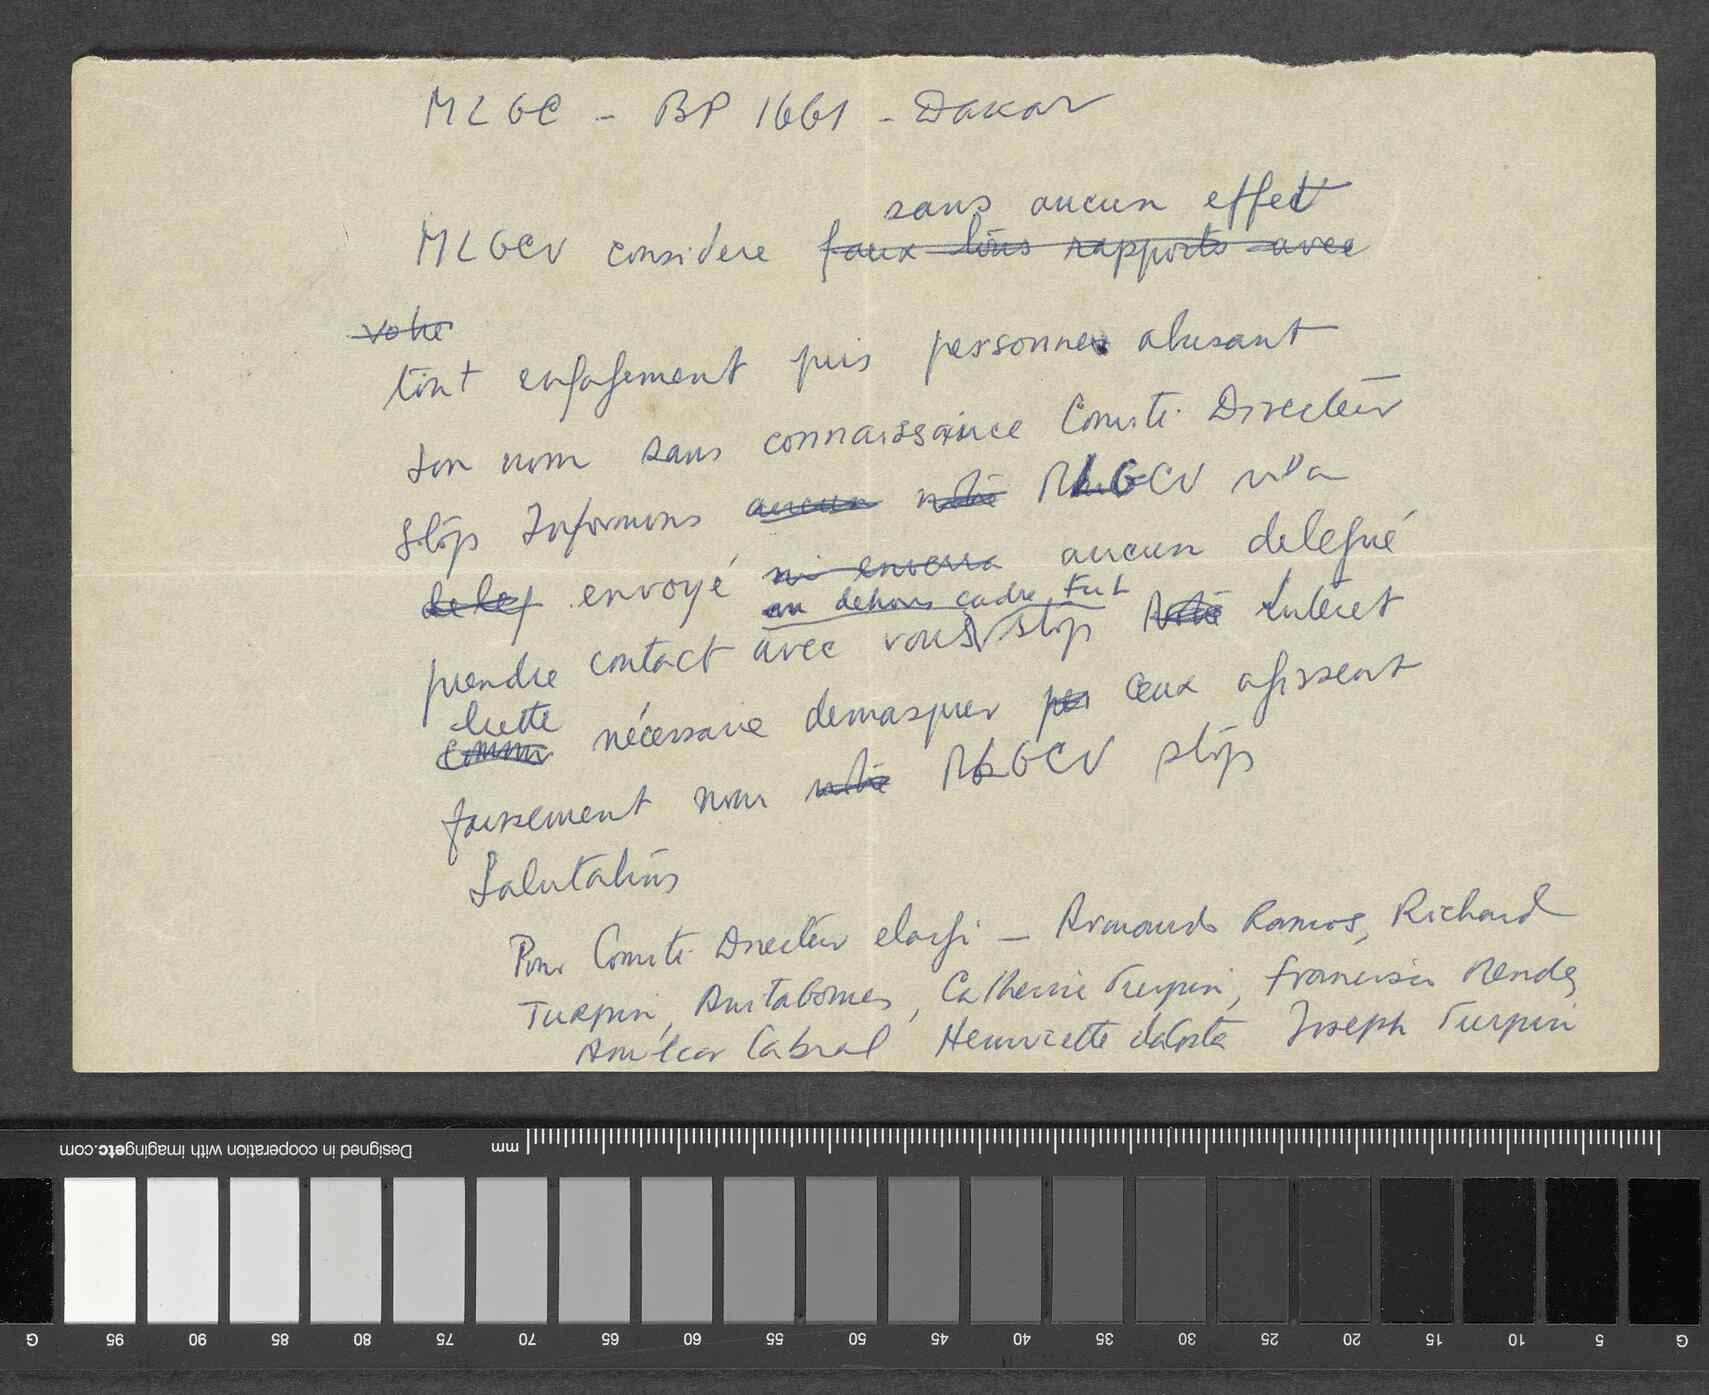 MLGC - BP 1661 - Dakar
sans aucun effet
MLGCV considere faux tous rapports avec
votre
tout engagement pris personnes abusant
son nom sans connaissance Comité Directeur
stop Informons aucun notre MLGCV n'a
deleg envoyé ni enverra aucun delegué
en dehors cadre Ful
prendre contact avec vous stop Notre Interet
lutte
comm nécessaire demasquer per ceux agissent
faussement nom notre MLGCV stop
Salutations
Pour Comité Directeur elargi - Armando Ramos, Richard
Turpin, Anita Gomes, Catherine Turpin, Francisco Mendes
Amilcar Cabral Henriette daCosta Joseph Turpin
Designed in cooperation with imagingetc.com
mm
G 95 90 85 80 75 70 65 60 55 50 45 40 35 30 25 20 15 10 5 G